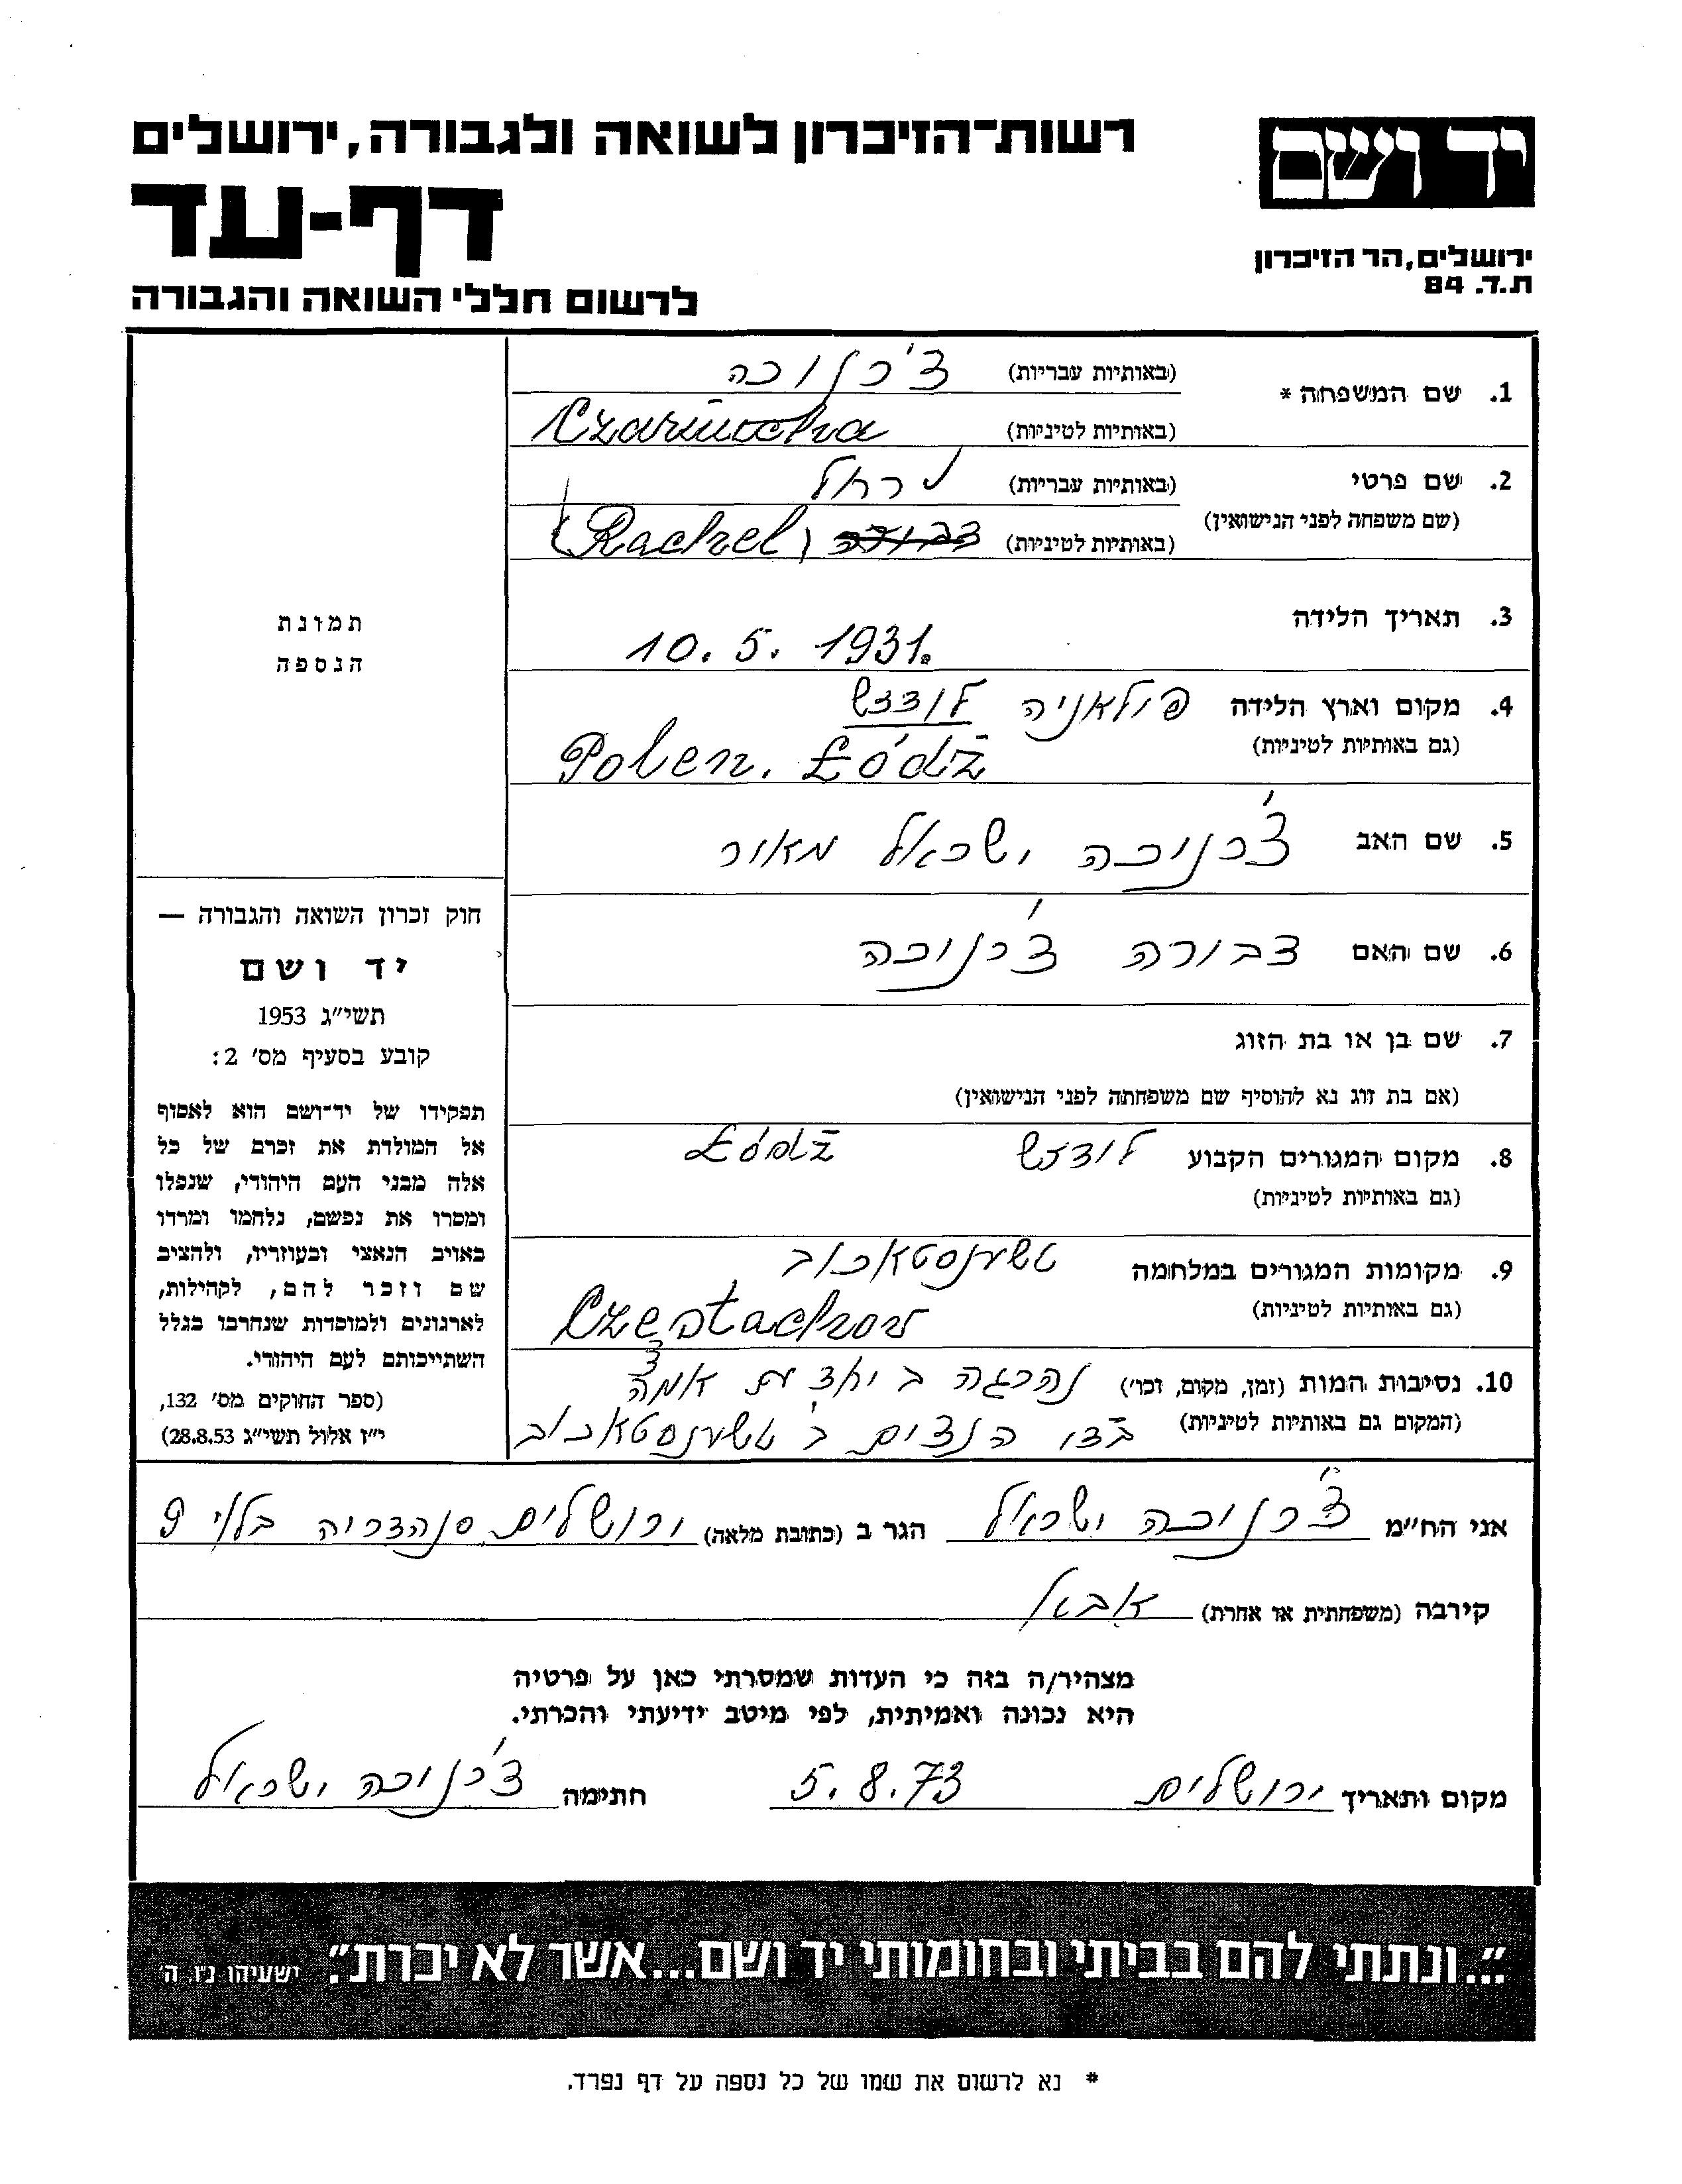 רשות-הזיכרון לשואה ולגבורה, ירושלים
יד ושם
דף-עד
ירושלים, הר הזיכרון
ת.ד. 84
לרשום חללי השואה והגבורה
1. שם המשפחה *
(באותיות עבריות) צ'רנוכה
(באותיות לטיניות) Czarnucha
2. שם פרטי
(באותיות עבריות) רחל
(שם משפחה לפני הנישואין)
(באותיות לטיניות) (Rachel)
3. תאריך הלידה 10. 5. 1931.
4. מקום וארץ הלידה פולאניה לודזש
(גם באותיות לטיניות) Polen. Łódż
5. שם האב צ'רנוכה ישראל מאור
6. שם האם דבורה צ'רנוכה
7. שם בן או בת הזוג
(אם בת זוג נא להוסיף שם משפחתה לפני הנישואין)
8. מקום המגורים הקבוע לודזש Łódż
(גם באותיות לטיניות)
9. מקומות המגורים במלחמה טשענסטאכוב
(גם באותיות לטיניות) Czenstachov
10. נסיבות המות (זמן, מקום, וכו') נהרגה ביחד עם אמה
(המקום גם באותיות לטיניות) הנצים ב טשענסטאכוב
תמונת
הנספה
חוק זכרון השואה והגבורה —
יד ושם
תשי"ג 1953
קובע בסעיף מס' 2:
תפקידו של יד-ושם הוא לאסוף
אל המולדת את זכרם של כל
אלה מבני העם היהודי, שנפלו
ומסרו את נפשם, נלחמו ומרדו
באויב הנאצי ובעוזריו, ולהציב
שם וזכר להם, לקהילות,
לארגונים ולמוסדות שנחרבו בגלל
השתייכותם לעם היהודי.
(ספר החוקים מס' 132,
י"ז אלול תשי"ג 28.8.53)
אני הח"מ צ'רנוכה ישראל הגר ב (כתובת מלאה) ירושלים סנהדריה בלוי 9
קירבה (משפחתית או אחרת) אבא
מצהיר/ה בזה כי העדות שמסרתי כאן על פרטיה
היא נכונה ואמיתית, לפי מיטב ידיעתי והכרתי.
מקום ותאריך ירושלים 5. 8. 73 חתימה צ'רנוכה ישראל
"...ונתתי להם בביתי ובחומותי יד ושם...אשר לא יכרת". ישעיהו נ"ו, ה'
* נא לרשום את שמו של כל נספה על דף נפרד.